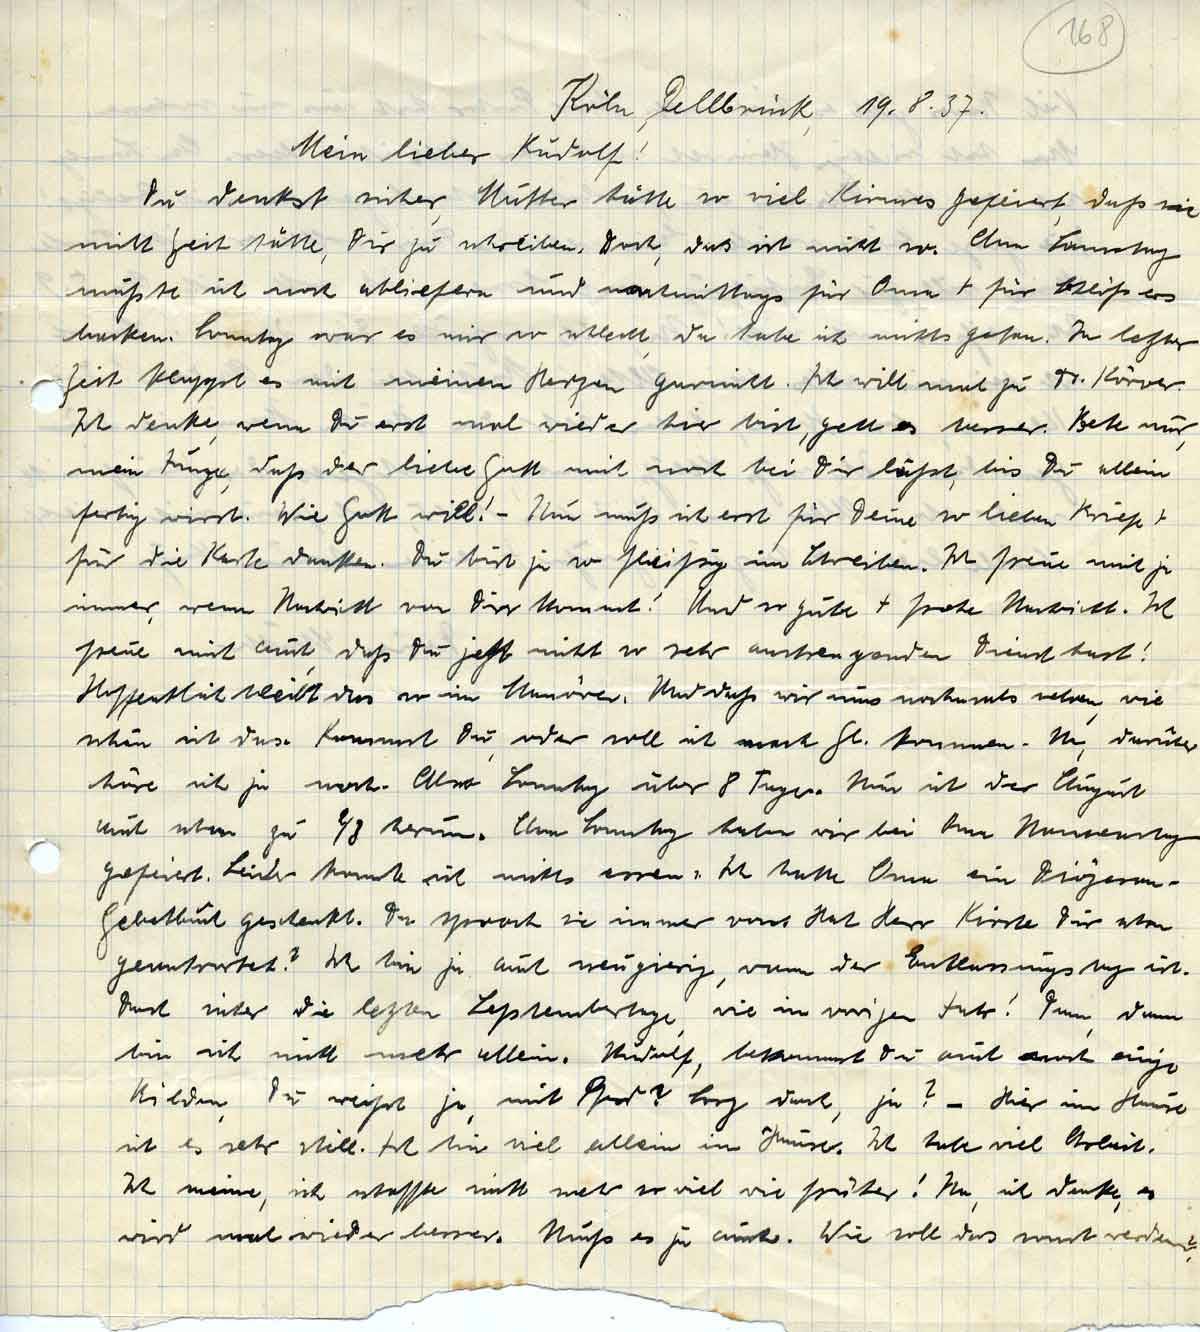 168
Köln, Dellbrück, 19.8.37.
Mein lieber Rudolf!
Du denkst sicher, Mutter hätte so viel Kirmes gefeiert, daß sie
nicht Zeit hätte, Dir zu schreiben. Doch, das ist nicht so. Am Samstag
mußte ich noch abliefern und nachmittags für Oma + für
backen. Sonntag war es mir so schlecht, da habe ich nichts getan. In letzter
Zeit klappt es mit meinem Herzen garnicht. Ich will mal zu Dr. Körver.
Ich denke, wenn Du erst mal wieder hier bist, geht es besser. Bete nur,
mein Junge, daß der liebe Gott mich noch bei Dir läßt, bis Du allein
fertig wirst. Wie Gott will! – Nun muß ich erst für Deine so lieben Briefe +
für die Karte danken. Du bist ja so fleißig im Schreiben. Ich freue mich ja
immer, wenn Nachricht von Dir kommt! Und so gute + frohe Nachricht. Ich
freue mich auch, daß Du jetzt nicht so sehr anstrengenden Dienst hast!
Hoffentlich bleibt das so im Manöver. Und daß wir uns nochmals sehen, wie
schön ist das. Kommst Du, oder soll ich nach Gl. kommen. Na, darüber
höre ich ja noch. Also Sonntag über 8 Tage. Nun ist der August
auch schon zu 2/3 herum. Am Sonntag haben wir bei Oma Namenstag
gefeiert. Leider konnte ich nichts essen. Ich hatte Oma ein Diözesan-
Gebetbuch geschenkt. Da sprach sie immer von. Hat Herr Kirch Dir schon
geantwortet? Ich bin ja auch neugierig, wann der Entlassungstag ist.
Doch sicher die letzten Septembertage, wie im vorigen Jahr! Dann, dann
bin ich nicht mehr allein. Rudolf, bekommst Du auch noch einige
Bilder, Du weißt ja, mit Pferd? Sorg doch, ja? – Hier im Hause
ist es sehr still. Ich bin viel allein im Hause. Ich habe viel Arbeit.
Ich meine, ich schaffte nicht mehr so viel wie früher! Na, ich denke, es
wird mal wieder besser. Muß es ja auch. Wie soll das sonst werden?